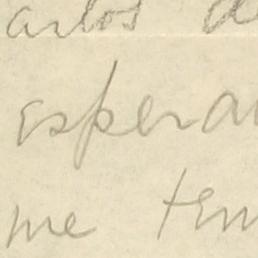 arlos de
espera
me ten